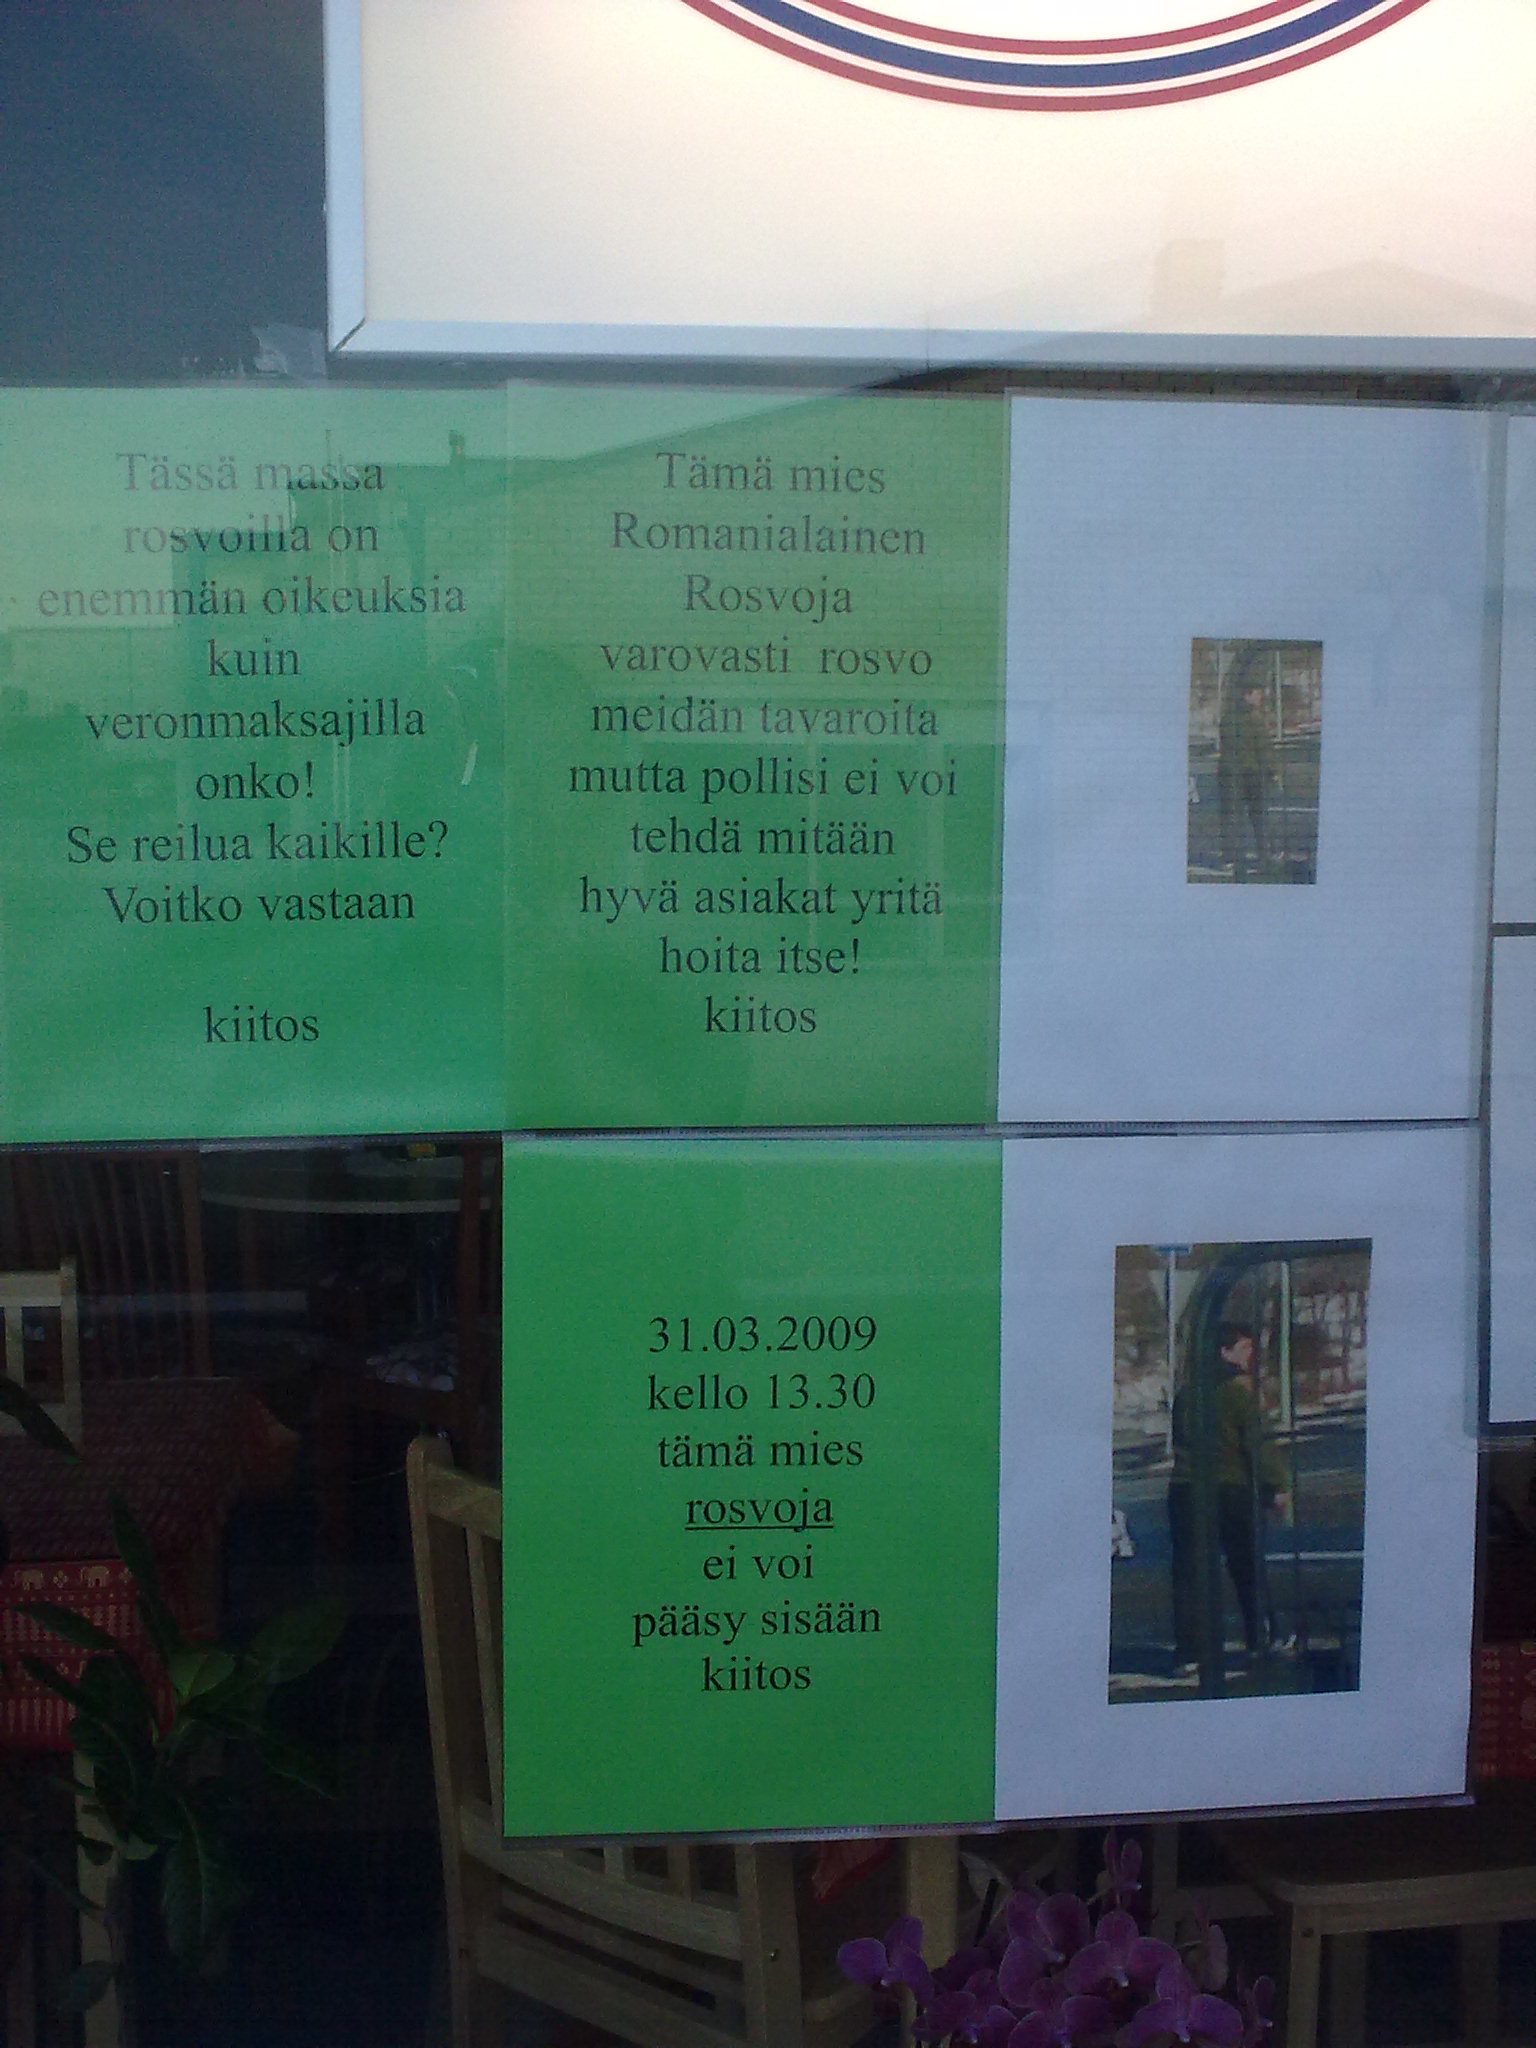 Tässä massa
rosvoilla on
enemmän oikeuksia
kuin
veronmaksajilla
onko!
Se reilua kaikille?
Voitko vastaan
kiitos
Tämä mies
Romanialainen
Rosvoja
varovasti rosvo
meidän tavaroita
mutta pollisi ei voi
tehdä mitään
hyvä asiakat yritä
hoita itse!
kiitos
31.03.2009
kello 13.30
tämä mies
rosvoja
ei voi
pääsy sisään
kiitos